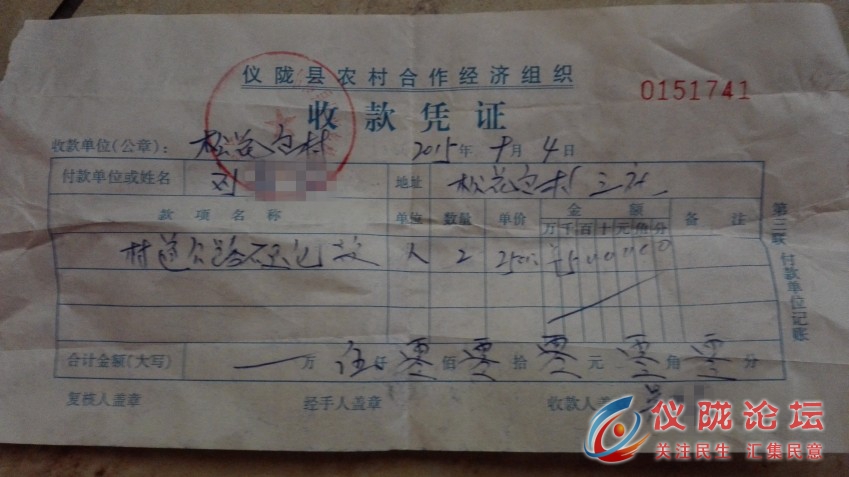 仪陇县农村合作经济组织
收款凭证
0151741
收款单位(公章): 松花 村 2015年 十月 4日
付款单位或姓名 刘 地址 松花 村三社
款项名称 单位 数量 单价 金额 备注
万千百十元角分
村道公路硬化 人 2 2500 5000 00
合计金额(大写) 一万 伍仟 零佰 零拾 零元 零角 零分
复核人盖章 经手人盖章 收款人盖
第三联 付款单位记账
仪陇论坛
关注民生 汇集民意